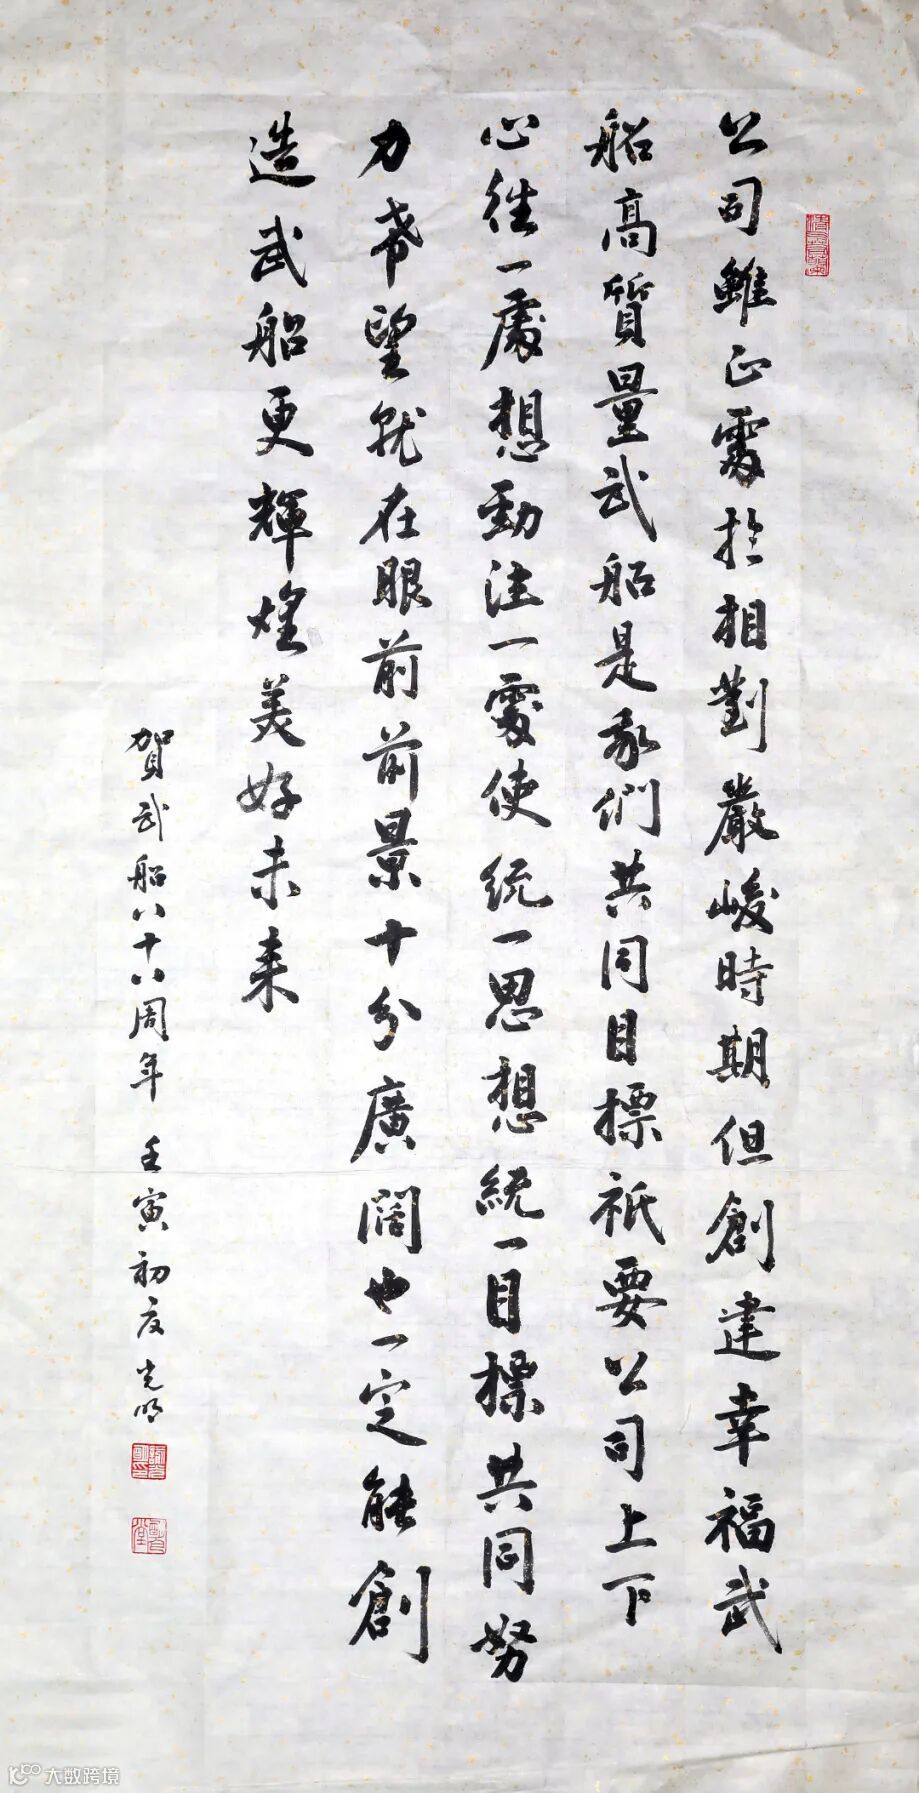 公司雖正處於相對嚴峻時期但創建幸福武
船高質量武船是我們共同目標祇要公司上下
心往一處想勁往一處使統一思想統一目標共同努
力希望就在眼前前景十分廣闊也一定能創
造武船更輝煌美好未来
賀武船八十八周年 壬寅初夏光明
大数跨境